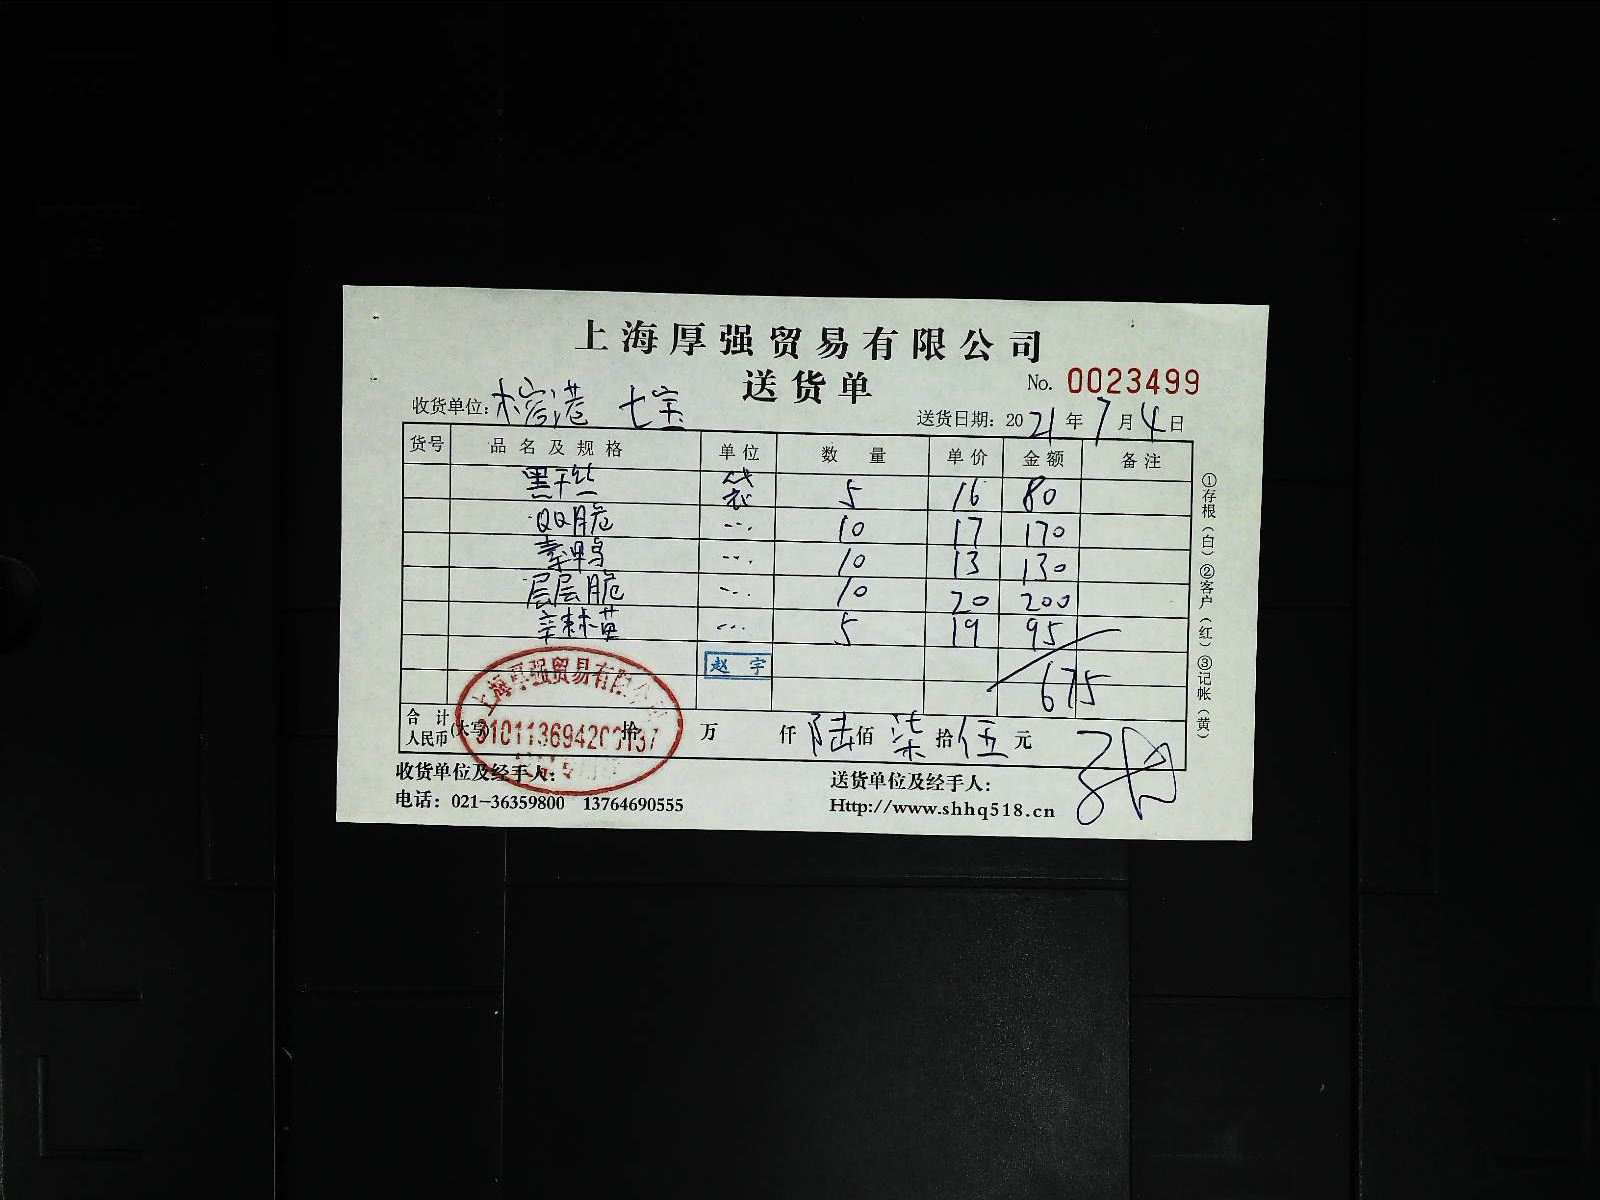 上海厚强贸易有限公司
送货单 No. 0023499
收货单位: 榕港 七宝 送货日期: 2021年7月4日
货号 品名及规格 单位 数量 单价 金额 备注
黑干丝 袋 5 16 80
QQ脆 … 10 17 170
素鸭 … 10 13 130
层层脆 … 10 20 200
辛辣黄 … 5 19 95
赵宇
675
合计人民币(大写) 拾 万 仟 陆佰 柒拾 伍元
上海厚强贸易有限公司
310113694200137
收货单位及经手人: 送货单位及经手人:
电话: 021-36359800 13764690555 Http://www.shhq518.cn
①存根(白)②客户(红)③记帐(黄)